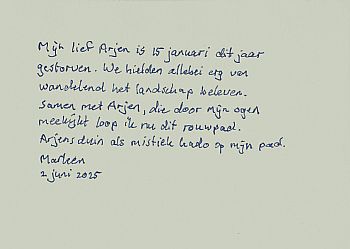 Mijn lief Arjen is 15 januari dit jaar
gestorven. We hielden allebei erg van
wandelend het landschap beleven.
Samen met Arjen, die door mijn ogen
meekijkt loop ik nu dit rouwpad.
Arjensduin als mistiek kado op mijn pad.
Marleen
2 juni 2025